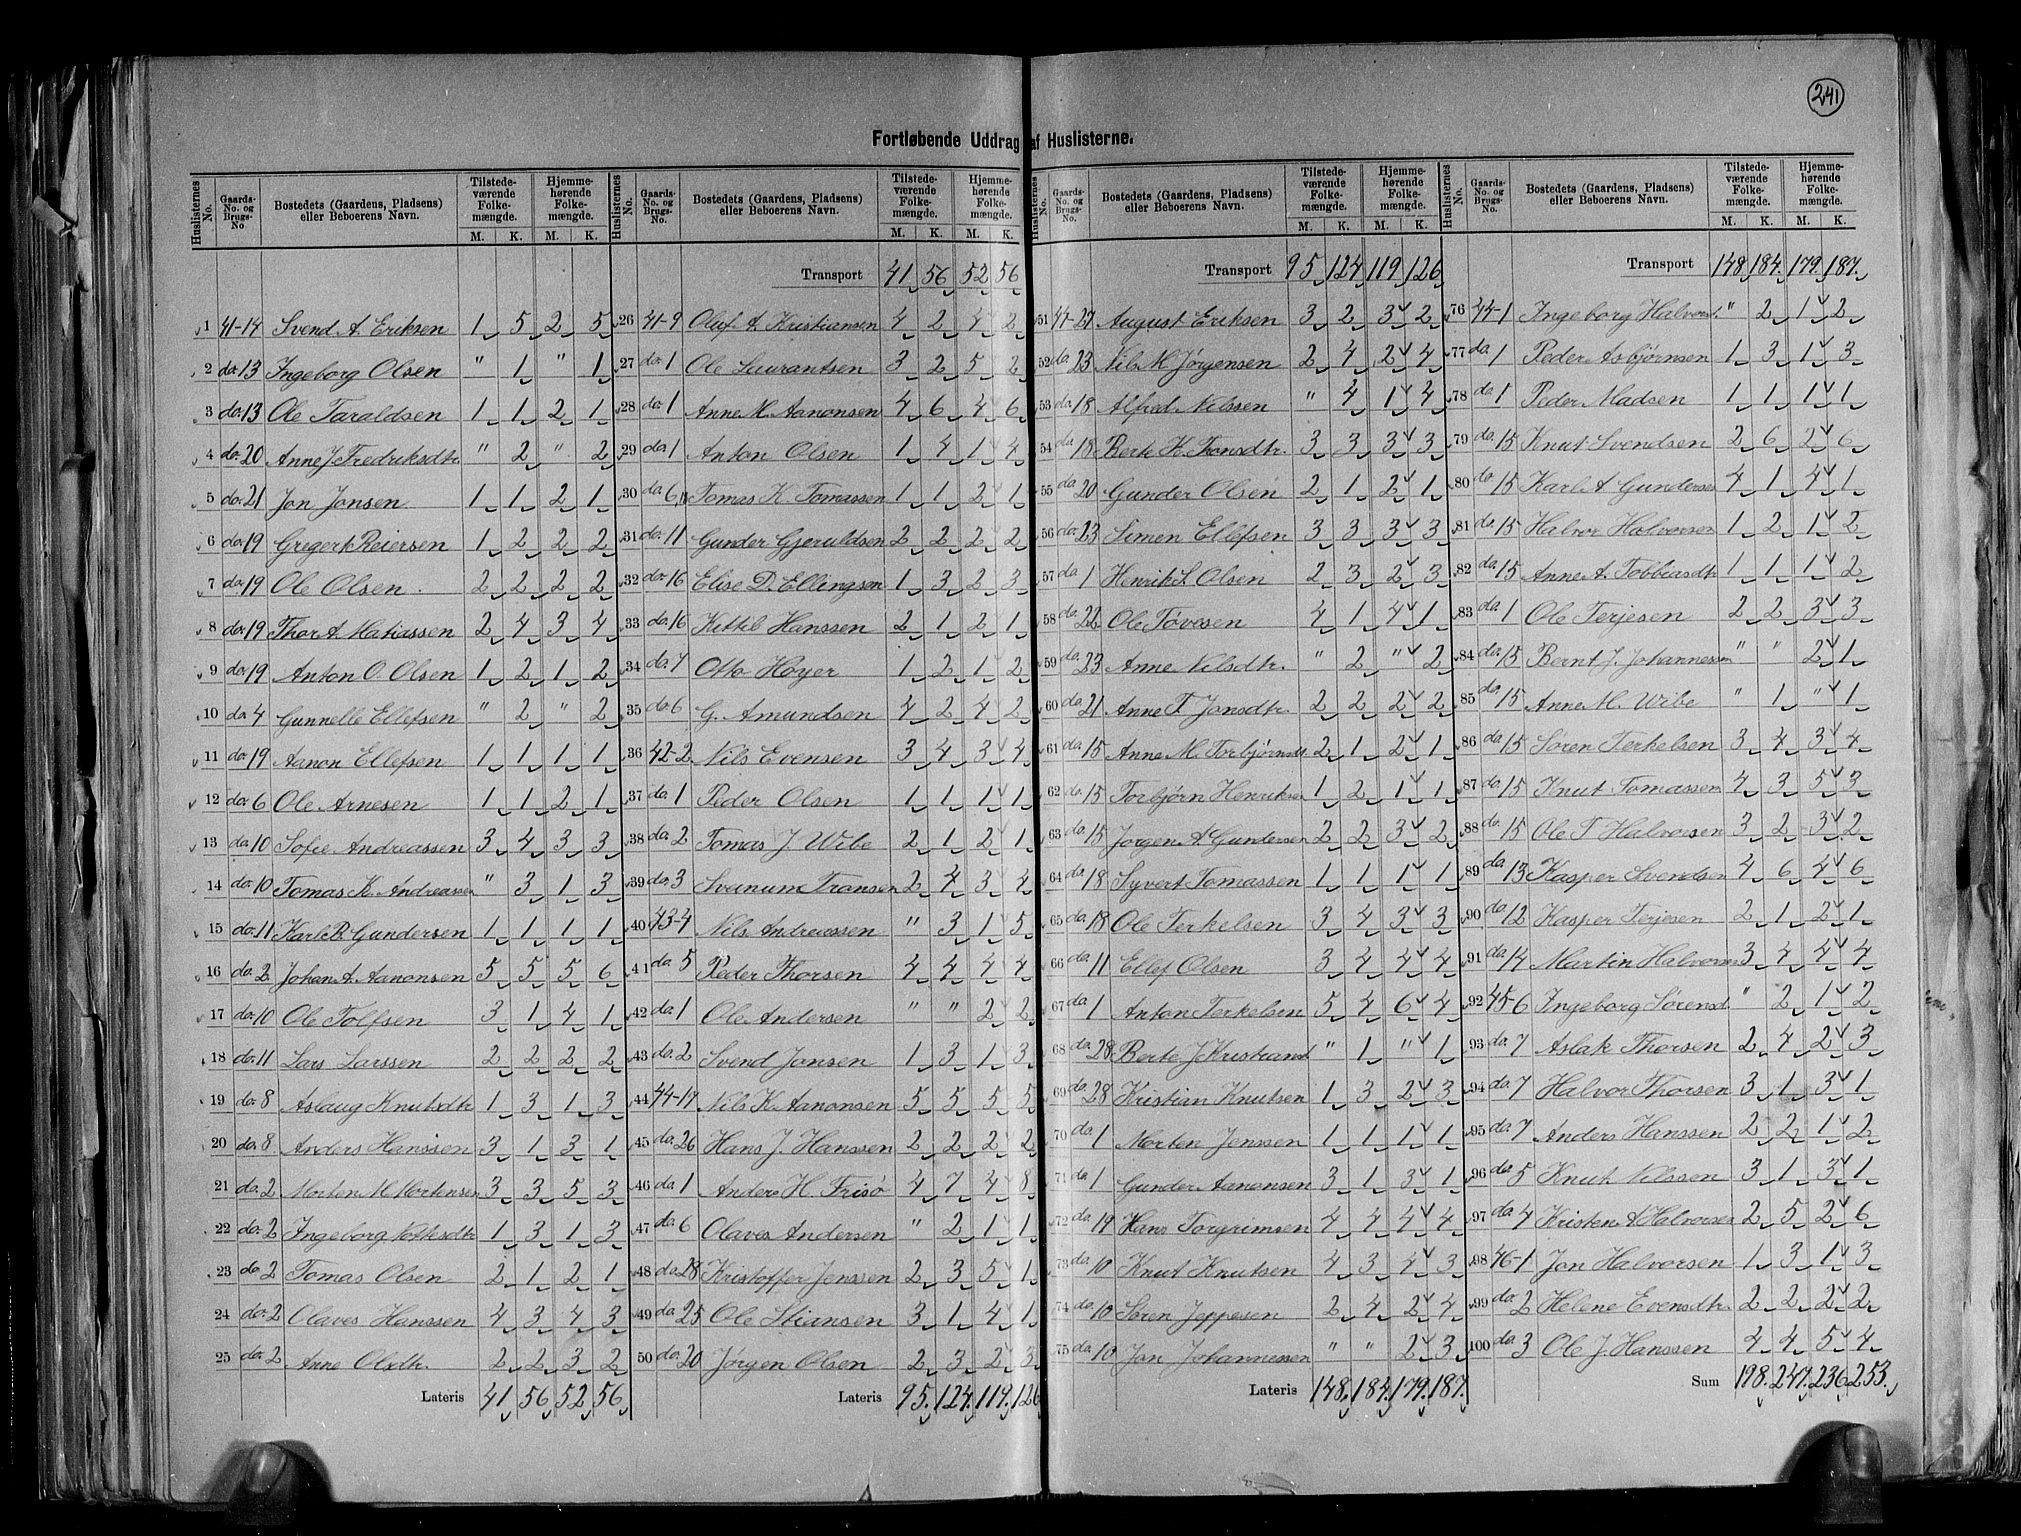 241
Fortløbende Uddrag af Huslisterne.
Huslisternes No. | Gaards-No. og Brugs-No | Bostedets (Gaardens, Pladsens) eller Beboerens Navn. | Tilstedeværende Folkemængde. M. K. | Hjemmehørende Folkemængde. M. K.
1 41-14 Svend A. Eriksen 1 5 2 5
2 do. 13 Ingeborg Olsen " 1 " 1
3 do. 13 Ole Taraldsen 1 1 2 1
4 do. 20 Anne J Fredriksdtr. " 2 " 2
5 do. 21 Jon Jonsen 1 1 2 1
6 do. 19 Gregert Reiersen 1 2 2 2
7 do. 19 Ole Olsen 2 2 2 2
8 do. 19 Thor A. Matiassen 2 4 3 4
9 do. 19 Anton O. Olsen 1 2 1 2
10 do. 4 Gunnelle Ellefsen " 2 " 2
11 do. 19 Aanon Ellefsen 1 1 1 1
12 do. 6 Ole Arnesen 1 1 2 1
13 do. 10 Sofie Andreassen 3 4 3 3
14 do. 10 Tomas K. Andreassen " 3 1 3
15 do. 11 Karl B. Gundersen 1 1 1 1
16 do. 2 Johan A. Aanonsen 5 5 5 6
17 do. 10 Ole Tolfsen 3 1 4 1
18 do. 11 Lars Larssen 2 2 2 2
19 do. 8 Aslaug Knutsdtr. 1 3 1 3
20 do. 8 Anders Hanssen 3 1 3 1
21 do. 2 Morten M. Mortensen 3 3 5 3
22 do. 2 Ingeborg 1 3 1 3
23 do. 2 Tomas Olsen 2 1 2 1
24 do. 2 Olaves Hanssen 4 3 4 3
25 do. 2 Anne Olsdtr. 2 2 3 2
Lateris 41 56 52 56
Huslisternes No. | Gaards-No. og Brugs-No. | Bostedets (Gaardens, Pladsens) eller Beboerens Navn. | Tilstedeværende Folkemængde. M. K. | Hjemmehørende Folkemængde. M. K.
Transport 41 56 52 56
26 41-9 Oluf A. Kristiansen 4 2 4 2
27 do. 1 Ole Laurantsen 3 2 5 2
28 do. 1 Anne M. Aanonsen 4 6 4 6
29 do. 1 Anton Olsen 1 4 1 4
30 do. 6 Tomas K. Tomassen 1 1 2 1
31 do. 11 Gunder Gjeruldsen 2 2 2 2
32 do. 16 Elise D. Ellingsen 1 3 2 3
33 do. 16 Kittil Hanssen 2 1 2 1
34 do. 7 Otto Høyer 1 2 1 2
35 do. 6 G. Amundsen 4 2 4 2
36 42-2 Nils Evensen 3 4 3 4
37 do. 1 Peder Olsen 1 1 1 1
38 do. 2 Tomas J. Wibe 2 1 2 1
39 do. 3 Sveinum Transen 2 4 3 4
40 43-4 Nils Andreassen " 3 1 5
41 do. 5 Peder Thorsen 4 4 4 4
42 do. 1 Ole Andersen " " 2 2
43 do. 2 Svend Jonsen 1 3 1 3
44 44-17 Nils K. Aanonsen 5 5 5 5
45 do. 26 Hans J. Hanssen 2 2 2 2
46 do. 1 Anders H. Frisø 4 7 4 8
47 do. 6 Olaves Andersen " 2 1 1
48 do. 28 Kristoffer Jenssen 2 3 5 1
49 do. 25 Ole Stiansen 3 1 4 1
50 do. 20 Jørgen Olsen 2 3 2 3
Lateris 95. 124. 119. 126
Huslisternes No. | Gaards-No. og Brugs-No. | Bostedets (Gaardens, Pladsens) eller Beboerens Navn. | Tilstedeværende Folkemængde. M. K. | Hjemmehørende Folkemængde. M. K.
Transport 95 124 119 126
51 44-27 August Eriksen 3 2 3 2
52 do. 23 Nils M. Jørgensen 2 4 2 4
53 do. 18 Alfred Nilssen " 4 1 4
54 do. 18 Berte K. Tronsdtr. 3 3 3 3
55 do. 20 Gunder Olsen 2 1 2 1
56 do. 23 Simen Ellefsen 3 3 3 3
57 do. 1 Henrik S. Olsen 2 3 2 3
58 do. 22 Ole Tøvesen 4 1 4 1
59 do. 23 Anne Nilsdtr. " 2 " 2
60 do. 21 Anne T. Jonsdtr. 2 2 2 2
61 do. 15 Anne M. Torbjørnsdt 2 1 2 1
62 do. 15 Torbjørn Henriksen 1 2 1 1
63 do. 15 Jørgen A. Gundersen 2 2 3 2
64 do. 18 Syvert Tomassen 1 1 1 1
65 do. 18 Ole Terkelsen 3 4 3 3
66 do. 11 Ellef Olsen 3 4 4 4
67 do. 1 Anton Terkelsen 5 4 6 4
68 do. 28 Berte J Kristiansd " 1 " 1
69 do. 28 Kristian Knutsen 1 3 2 3
70 do. 1 Morten Jenssen 1 1 1 1
71 do. 1 Gunder Aanonsen 3 1 3 1
72 do. 19 Hans Torgrimsen 4 4 4 4
73 do. 10 Knut Knutsen 4 3 4 3
74 do. 10 Søren Jeppesen 2 4 2 4
75 do. 10 Jon Johannessen " " 2 3
Lateris 148. 184. 179. 187.
Huslisternes No. | Gaards-No. og Brugs-No. | Bostedets (Gaardens, Pladsens) eller Beboerens Navn. | Tilstedeværende Folkemængde. M. K. | Hjemmehørende Folkemængde. M. K.
Transport 148 184. 179. 187.
76 44-1 Ingeborg Halvorsd. " 2 1 2
77 do. 1 Peder Asbjørnsen 1 3 1 3
78 do. 1 Peder Madsen 1 1 1 1
79 do. 15 Knut Svendsen 2 6 2 6
80 do. 15 Karl A. Gundersen 4 1 4 1
81 do. 15 Halvor Halvorsen 1 2 1 2
82 do. 15 Anne A. Tobbiasdtr 1 1 1 2
83 do. 1 Ole Terjesen 2 2 3 3
84 do. 15 Bernt J. Johannessen " " 2 1
85 do. 15 Anne M. Wibe " 1 " 1
86 do. 15 Søren Terkelsen 3 4 3 4
87 do. 15 Knut Tomassen 4 3 5 3
88 do. 15 Ole T. Halvorsen 3 2 3 2
89 do. 13 Kasper Svendsen 4 6 4 6
90 do. 12 Kasper Terjesen 2 1 2 1
91 do. 14 Martin Halvorsen 3 4 4 4
92 45-6 Ingeborg Sørensd " 2 1 2
93 do. 7 Aslak Thorsen 2 4 2 3
94 do. 7 Halvor Thorsen 3 1 3 1
95 do. 7 Anders Hanssen 2 2 1 2
96 do. 5 Knut Nilssen 3 1 3 1
97 do. 4 Kristen A Halvorsen 2 5 2 6
98 46-1 Jon Halvorsen 1 3 1 3
99 do. 2 Helene Evensdtr. 2 2 2 2
100 do. 3 Ole J. Hanssen 4 4 5 4
Sum 198. 247. 236. 253.